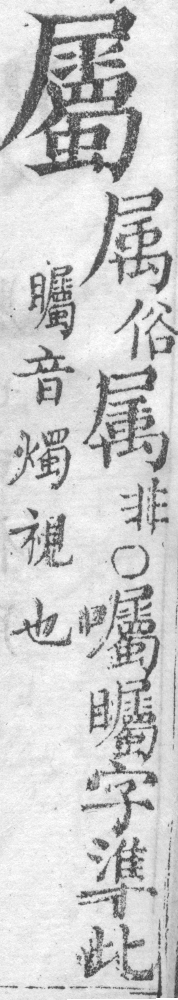 屬
属俗属非○囑矚字準此
矚音燭視也